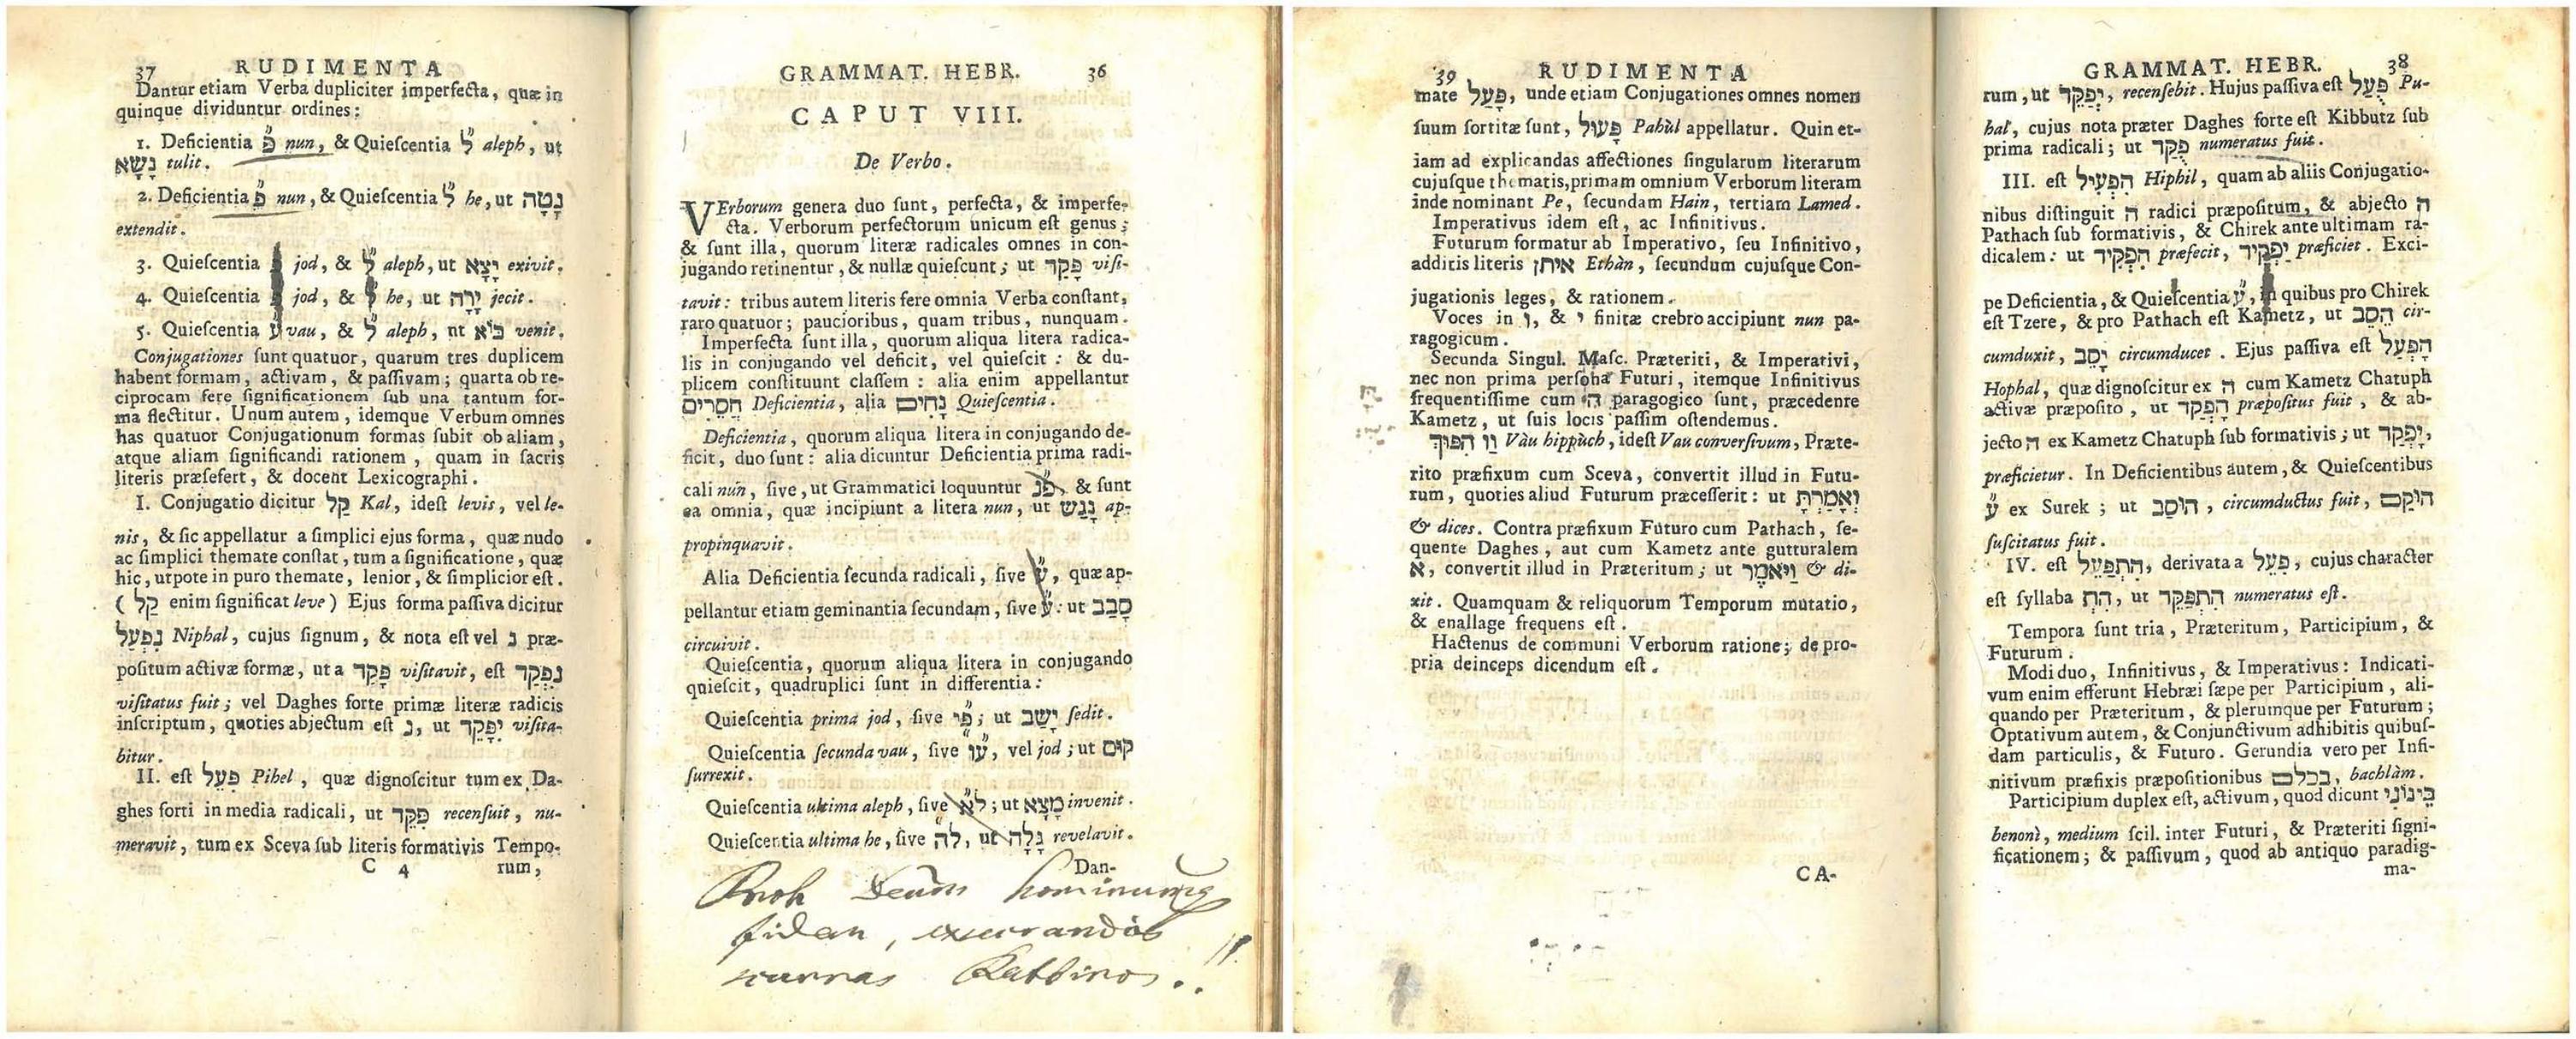 GRAMMAT. HEBR. 36
CAPUT VIII.
De Verbo.
VErborum genera duo ſunt, perfecta, & imperfe-
cta. Verborum perfectorum unicum eſt genus;
& ſunt illa, quorum literæ radicales omnes in con-
jugando retinentur, & nullæ quieſcunt; ut פָּקַד viſi-
tavit: tribus autem literis fere omnia Verba conſtant,
raro quatuor; paucioribus, quam tribus, nunquam.
Imperfecta ſunt illa, quorum aliqua litera radica-
lis in conjugando vel deficit, vel quieſcit: & du-
plicem conſtituunt claſſem: alia enim appellantur
חֲסֵרִים Deficientia, alia נָחִים Quieſcentia.
Deficientia, quorum aliqua litera in conjugando de-
ficit, duo ſunt: alia dicuntur Deficientia prima radi-
cali nun, ſive, ut Grammatici loquuntur פ״נ, & ſunt
ea omnia, quæ incipiunt a litera nun, ut נָגַשׁ ap-
propinquavit.
Alia Deficientia ſecunda radicali, ſive ע״, quæ ap-
pellantur etiam geminantia ſecundam, ſive ע״: ut סָבַב
circuivit.
Quieſcentia, quorum aliqua litera in conjugando
quieſcit, quadruplici ſunt in differentia:
Quieſcentia prima jod, ſive פ״י; ut יָשַׁב ſedit.
Quieſcentia ſecunda vau, ſive ע״ו, vel jod; ut קוּם
ſurrexit.
Quieſcentia ultima aleph, ſive ל״א; ut מָצָא invenit.
Quieſcentia ultima he, ſive ל״ה, ut גָּלָה revelavit.
Dan-
Proh Deûm hominumq
fidem, execrandos
scurras Rabbinos..!!
37 RUDIMENTA
Dantur etiam Verba dupliciter imperfecta, quæ in
quinque dividuntur ordines:
1. Deficientia פ״ nun, & Quieſcentia ל״ aleph, ut
נָשָׂא tulit.
2. Deficientia פ״ nun, & Quieſcentia ל״ he, ut נָטָה
extendit.
3. Quieſcentia jod, & ל״ aleph, ut יָצָא exivit.
4. Quieſcentia jod, & he, ut יָרָה jecit.
5. Quieſcentia ע״ vau, & ל״ aleph, nt בּוֹא venit.
Conjugationes ſunt quatuor, quarum tres duplicem
habent formam, activam, & paſſivam; quarta ob re-
ciprocam fere ſignificationem ſub una tantum for-
ma flectitur. Unum autem, idemque Verbum omnes
has quatuor Conjugationum formas ſubit ob aliam,
atque aliam ſignificandi rationem, quam in ſacris
literis præſefert, & docent Lexicographi.
I. Conjugatio dicitur קַל Kal, ideſt levis, vel le-
nis, & ſic appellatur a ſimplici ejus forma, quæ nudo
ac ſimplici themate conſtat, tum a ſignificatione, quæ
hic, utpote in puro themate, lenior, & ſimplicior eſt.
( קַל enim ſignificat leve ) Ejus forma paſſiva dicitur
נִפְעַל Niphal, cujus ſignum, & nota eſt vel נ præ-
poſitum activæ formæ, ut a פָּקַד viſitavit, eſt נִפְקַד
viſitatus fuit; vel Daghes forte primæ literæ radicis
inſcriptum, quoties abjectum eſt נ, ut יִפָּקֵד viſita-
bitur.
II. eſt פִּעֵל Pihel, quæ dignoſcitur tum ex Da-
ghes forti in media radicali, ut פִּקֵּד recenſuit, nu-
meravit, tum ex Sceva ſub literis formativis Tempo-
C 4 rum,
GRAMMAT. HEBR. 38
rum, ut יְפַקֵּד, recenſebit. Hujus paſſiva eſt פֻּעַל Pu-
hal, cujus nota præter Daghes forte eſt Kibbutz ſub
prima radicali; ut פֻּקַּד numeratus fuit.
III. eſt הִפְעִיל Hiphil, quam ab aliis Conjugatio-
nibus diſtinguit ה radici præpoſitum, & abjecto ה
Pathach ſub formativis, & Chirek ante ultimam ra-
dicalem: ut הִפְקִיד præfecit, יַפְקִיד præficiet. Exci-
pe Deficientia, & Quieſcentia ע״, in quibus pro Chirek
eſt Tzere, & pro Pathach eſt Kametz, ut הֵסֵב cir-
cumduxit, יָסֵב circumducet. Ejus paſſiva eſt הָפְעַל
Hophal, quæ dignoſcitur ex ה cum Kametz Chatuph
activæ præpoſito, ut הָפְקַד præpoſitus fuit, & ab-
jecto ה ex Kametz Chatuph ſub formativis; ut יָפְקַד,
præficietur. In Deficientibus autem, & Quieſcentibus
ע״ ex Surek; ut הוּסַב, circumductus fuit, הוּקַם
ſuſcitatus fuit.
IV. eſt הִתְפַּעֵל, derivata a פִּעֵל, cujus character
eſt ſyllaba הִתְ, ut הִתְפַּקֵּד numeratus eſt.
Tempora ſunt tria, Præteritum, Participium, &
Futurum.
Modi duo, Infinitivus, & Imperativus: Indicati-
vum enim efferunt Hebræi ſæpe per Participium, ali-
quando per Præteritum, & plerumque per Futurum;
Optativum autem, & Conjunctivum adhibitis quibuſ-
dam particulis, & Futuro. Gerundia vero per Infi-
nitivum præfixis præpoſitionibus בכלם, bachlàm.
Participium duplex eſt, activum, quod dicunt בֵּינוֹנִי
benonì, medium ſcil. inter Futuri, & Præteriti ſigni-
ficationem; & paſſivum, quod ab antiquo paradig-
ma-
39 RUDIMENTA
mate פָּעַל, unde etiam Conjugationes omnes nomen
ſuum ſortitæ ſunt, פָּעוּל Pahùl appellatur. Quin et-
iam ad explicandas affectiones ſingularum literarum
cujuſque thematis, primam omnium Verborum literam
inde nominant Pe, ſecundam Hain, tertiam Lamed.
Imperativus idem eſt, ac Infinitivus.
Futurum formatur ab Imperativo, ſeu Infinitivo,
additis literis איתן Ethàn, ſecundum cujuſque Con-
jugationis leges, & rationem.
Voces in ו, & י finitæ crebro accipiunt nun pa-
ragogicum.
Secunda Singul. Maſc. Præteriti, & Imperativi,
nec non prima perſona Futuri, itemque Infinitivus
frequentiſſime cum ה paragogico ſunt, præcedenre
Kametz, ut ſuis locis paſſim oſtendemus.
וָו הִפּוּךְ Vàu hippùch, ideſt Vau converſivum, Præte-
rito præfixum cum Sceva, convertit illud in Futu-
rum, quoties aliud Futurum præceſſerit: ut וְאָמַרְתָּ
& dices. Contra præfixum Futuro cum Pathach, ſe-
quente Daghes, aut cum Kametz ante gutturalem
א, convertit illud in Præteritum; ut וַיֹּאמֶר & di-
xit. Quamquam & reliquorum Temporum mutatio,
& enallage frequens eſt.
Hactenus de communi Verborum ratione; de pro-
pria deinceps dicendum eſt.
CA-